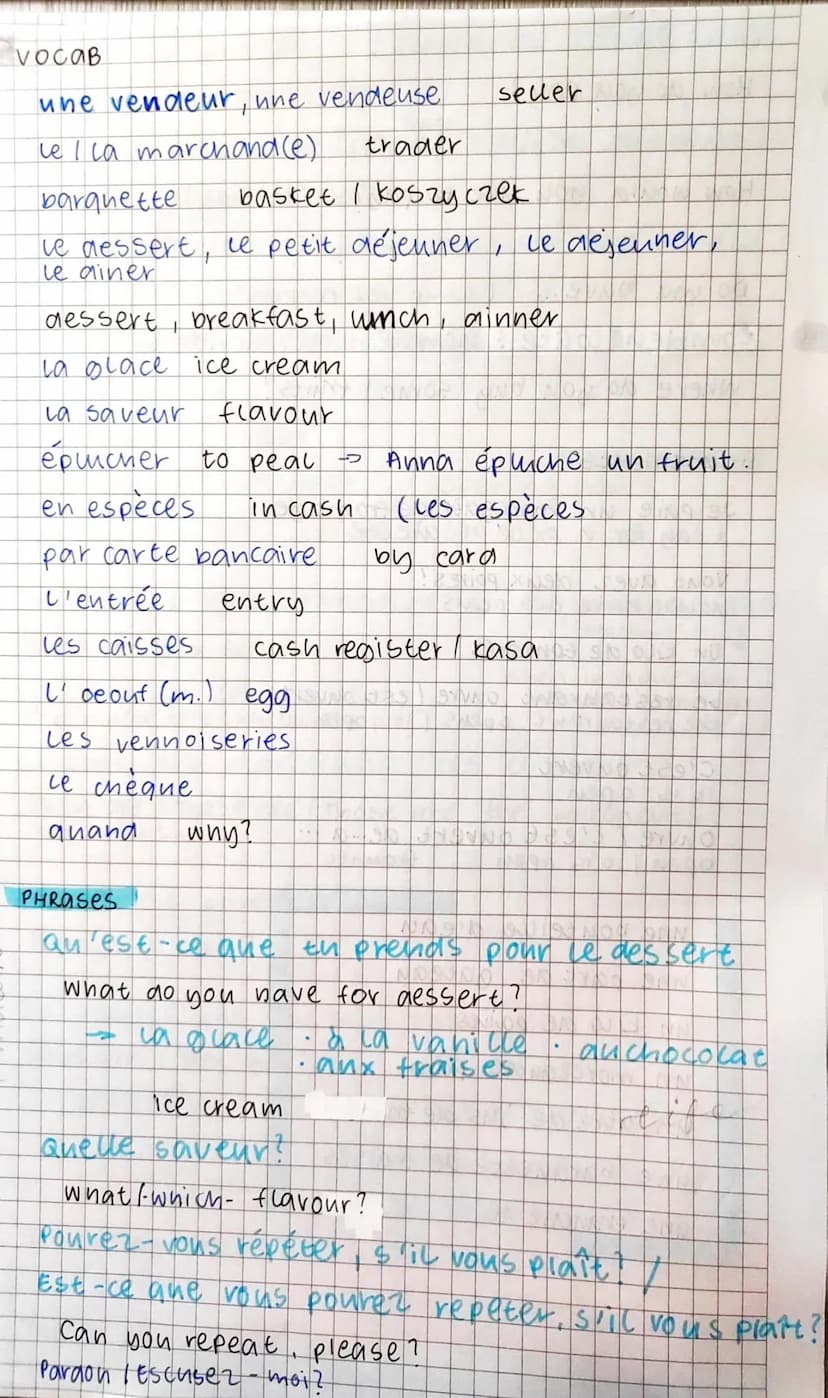 VOCAB
une vendeur, une vendeuse seller
le / la marchand(e) trader
barquette basket / koszyczek
le dessert, le petit déjeuner, le déjeuner,
le dîner
dessert, breakfast, lunch, dinner
la glace ice cream
la saveur flavour
éplucher to peal → Anna épluche un fruit.
en espèces in cash (les espèces
par carte bancaire by card
l'entrée entry
les caisses cash register / kasa
l'oeouf (m.) egg
les vennoiseries
le chèque
quand why?
PHRASES
qu'est-ce que tu prends pour le dessert
what do you have for dessert?
→ la glace · à la vanille · au chocolat
· aux fraises
ice cream
quelle saveur?
what /-which- flavour?
Pourez-vous répéter, s'il vous plaît? /
Est-ce que vous pourez repeter, s'il vous plaît?
Can you repeat, please?
Pardon / Escusez-moi?